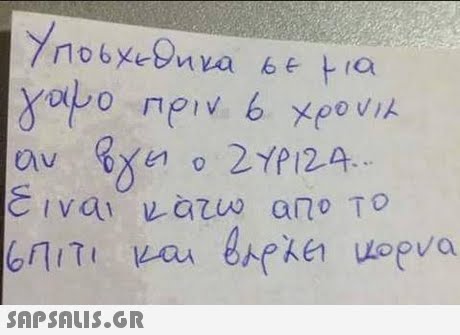 Υποσχεθηκα σε μια
γαμο πριν 6 χρονια
αν βγει ο ΣΥΡΙΖΑ...
Ειναι κάτω απο το
σπιτι και βαράει κορνα
SAPSALIS.GR